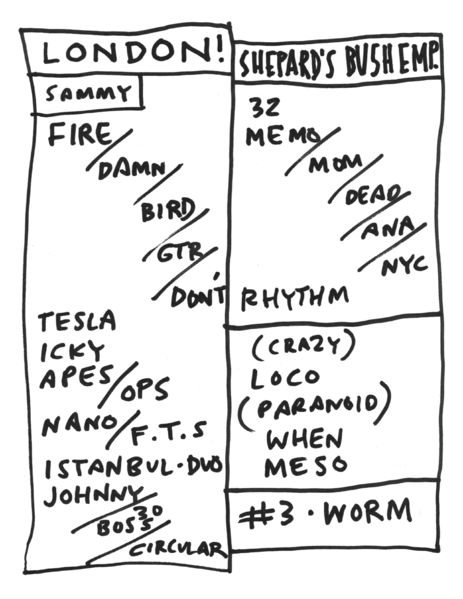 LONDON!
SAMMY
FIRE/
DAMN/
BIRD/
GTR/
DON'T
TESLA
ICKY
APES/OPS
NANO/F.T.S
ISTANBUL·DUO
JOHNNY/
BOSS 30/
CIRCULAR
SHEPARD'S BUSH EMP.
32
MEMO/
MOM/
DEAD/
ANA/
NYC
RHYTHM
(CRAZY)
LOCO
(PARANOID)
WHEN
MESO
#3·WORM